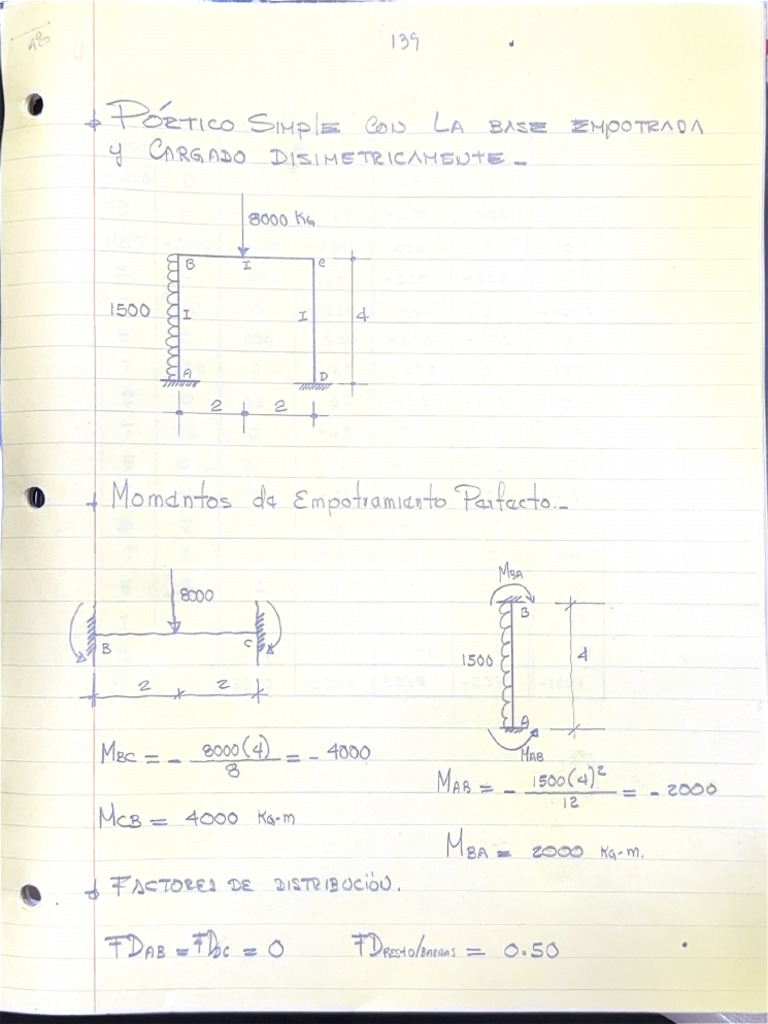 48
139
PÓRTICO SIMPLE CON LA BASE EMPOTRADA
Y CARGADO DISIMETRICAMENTE_
8000 KG
B I C
1500 I I 4
A D
2 2
Momentos de Empotramiento Perfecto._
8000
B C
2 2
MBA
B
1500 4
A
MAB
MBC = - 8000(4)/8 = - 4000
MCB = 4000 KG-m
MAB = - 1500(4)²/12 = - 2000
MBA = 2000 KG-m.
FACTORES DE DISTRIBUCIÓN.
FDAB = FDDC = 0 FDRESTO/BARRAS = 0.50